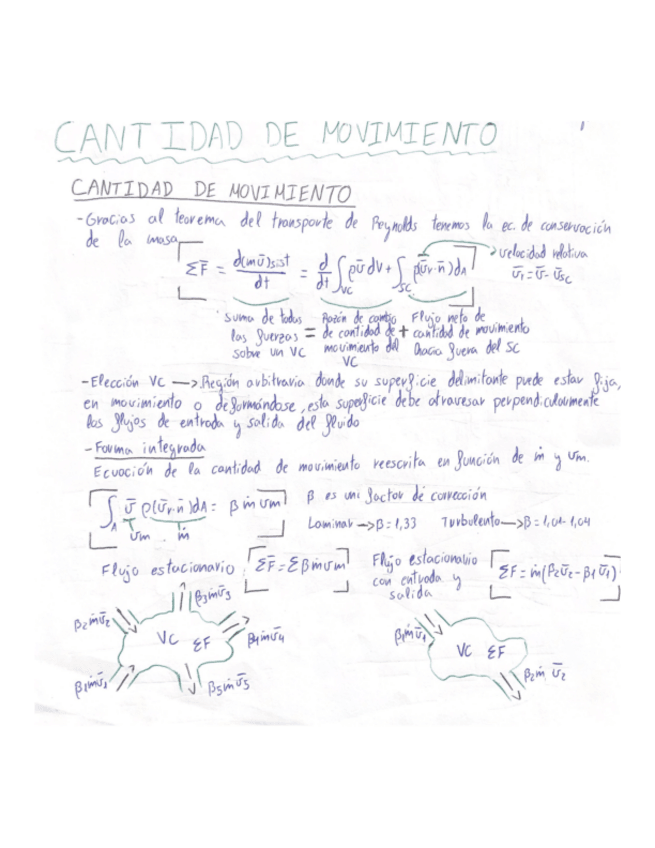 CANTIDAD DE MOVIMIENTO
CANTIDAD DE MOVIMIENTO
-Gracias al teorema del transporte de Reynolds tenemos la ec. de conservación
de la masa
ΣF̅ = d(mv̅)sist/dt = d/dt ∫VC ρv̅ dV + ∫SC ρ(v̅r·n̅)dA
velocidad relativa
v̅r = v̅ - v̅sc
suma de todas las fuerzas sobre un VC = Razón de cambio de cantidad de movimiento del VC + Flujo neto de cantidad de movimiento hacia fuera del SC
-Elección VC → Región arbitraria donde su superficie delimitante puede estar fija,
en movimiento o deformándose, esta superficie debe atravesar perpendicularmente
los flujos de entrada y salida del fluido
-Forma integrada
Ecuación de la cantidad de movimiento reescrita en función de ṁ y vm.
∫A v̅ ρ(v̅r·n̅)dA = β ṁ vm
vm ṁ
β es un factor de corrección
Laminar → β = 1,33 Turbulento → β = 1,01-1,04
Flujo estacionario ΣF̅ = Σβṁvm
Flujo estacionario con entrada y salida ΣF = ṁ(β2v̅2 - β1v̅1)
β3ṁv̅3
β2ṁv̅2
VC ΣF
β4ṁv̅4
β1ṁv̅1
β5ṁv̅5
β1ṁv̅1
VC ΣF
β2ṁ v̅2